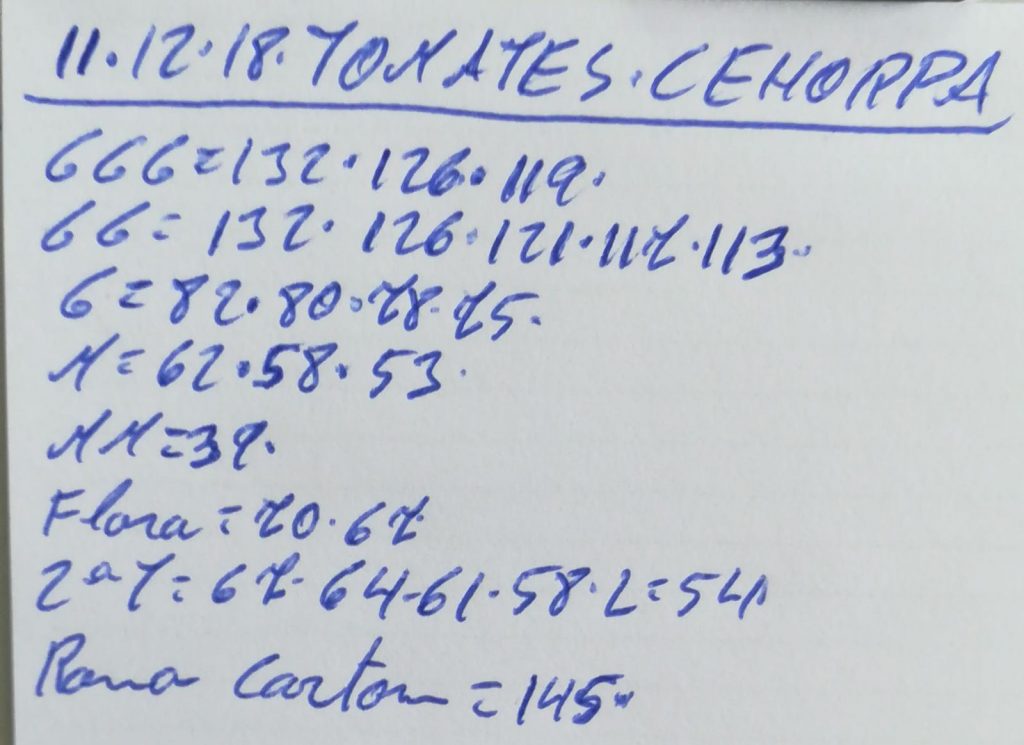 11.12.18. TOMATES. CEHORPA
GGG=132.126.119.
GG=132.126.121.117.113.
G=82.80.78.75.
M=62.58.53.
MM=39.
Flora=70.67
2ªT=67.64-61.58.L=54
Rama Carton=145.